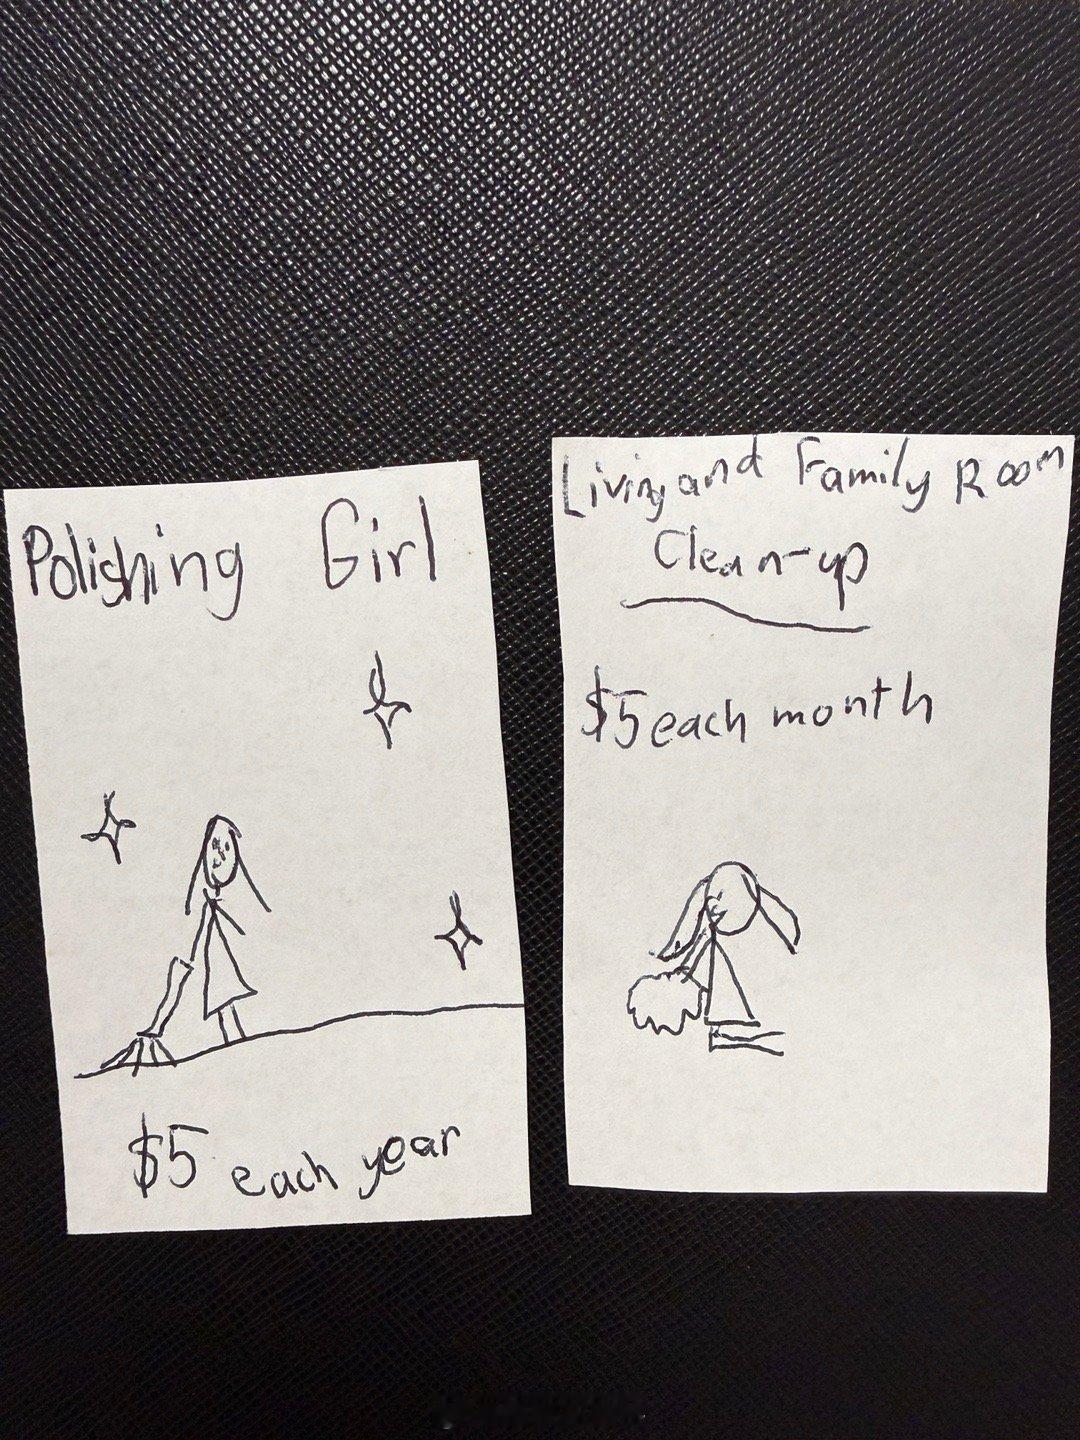 Polishing Girl
$5 each year
Living and Family Room
Clean-up
$5 each month